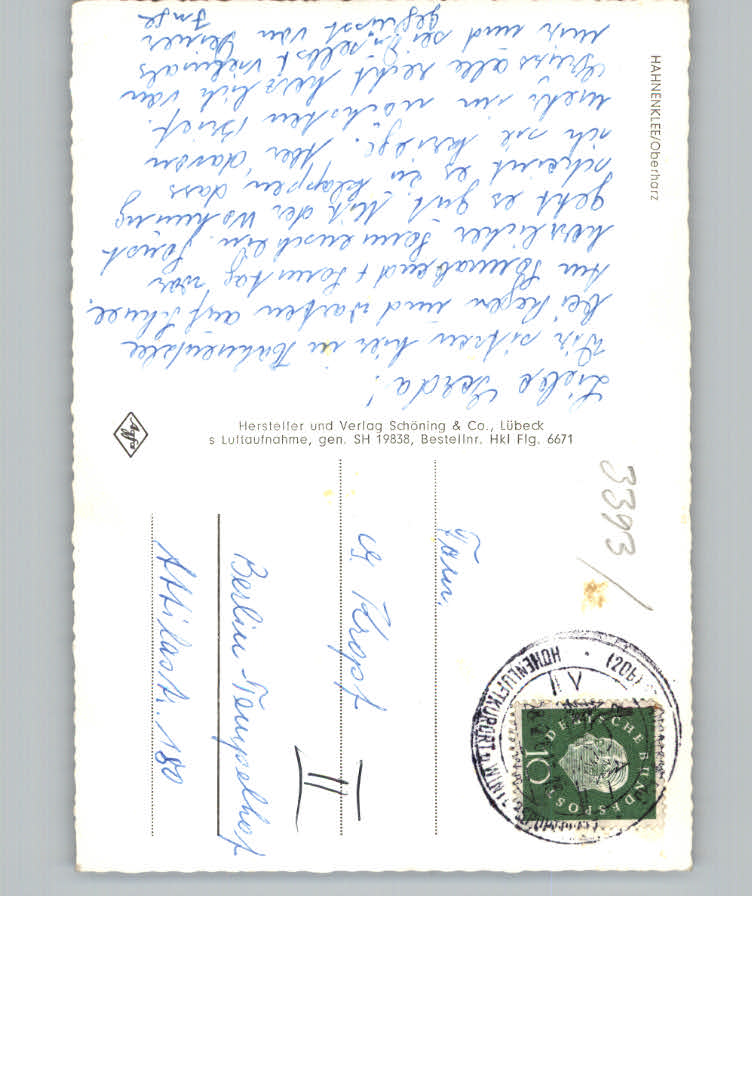 HAHNENKLEE/Oberharz
Liebe Gerda!
Wir sitzen hier in Hahnenklee
bei Regen und warten auf Schnee.
Am Sonnabend + Sonntag war
herrlicher Sonnenschein. Sonst
geht es gut. Mit der Wohnung
scheint es zu klappen, dass
ich sie kriege. Aber davon
mehr im nächsten Brief.
Grüss alle recht herzlich von
mir und sei Du selbst vielmals
gegrüsst von Deiner
Inge
Agfa
Hersteller und Verlag Schöning & Co., Lübeck
s Luftaufnahme, gen. SH 19838, Bestellnr. Hkl Flg. 6671
3393/
Fam.
G Kropf
Berlin-Tempelhof
Attilastr. 180
II
(20b)
HÖHENLUFTKURORT U. WINT
DEUTSCHE BUNDESPOST
10